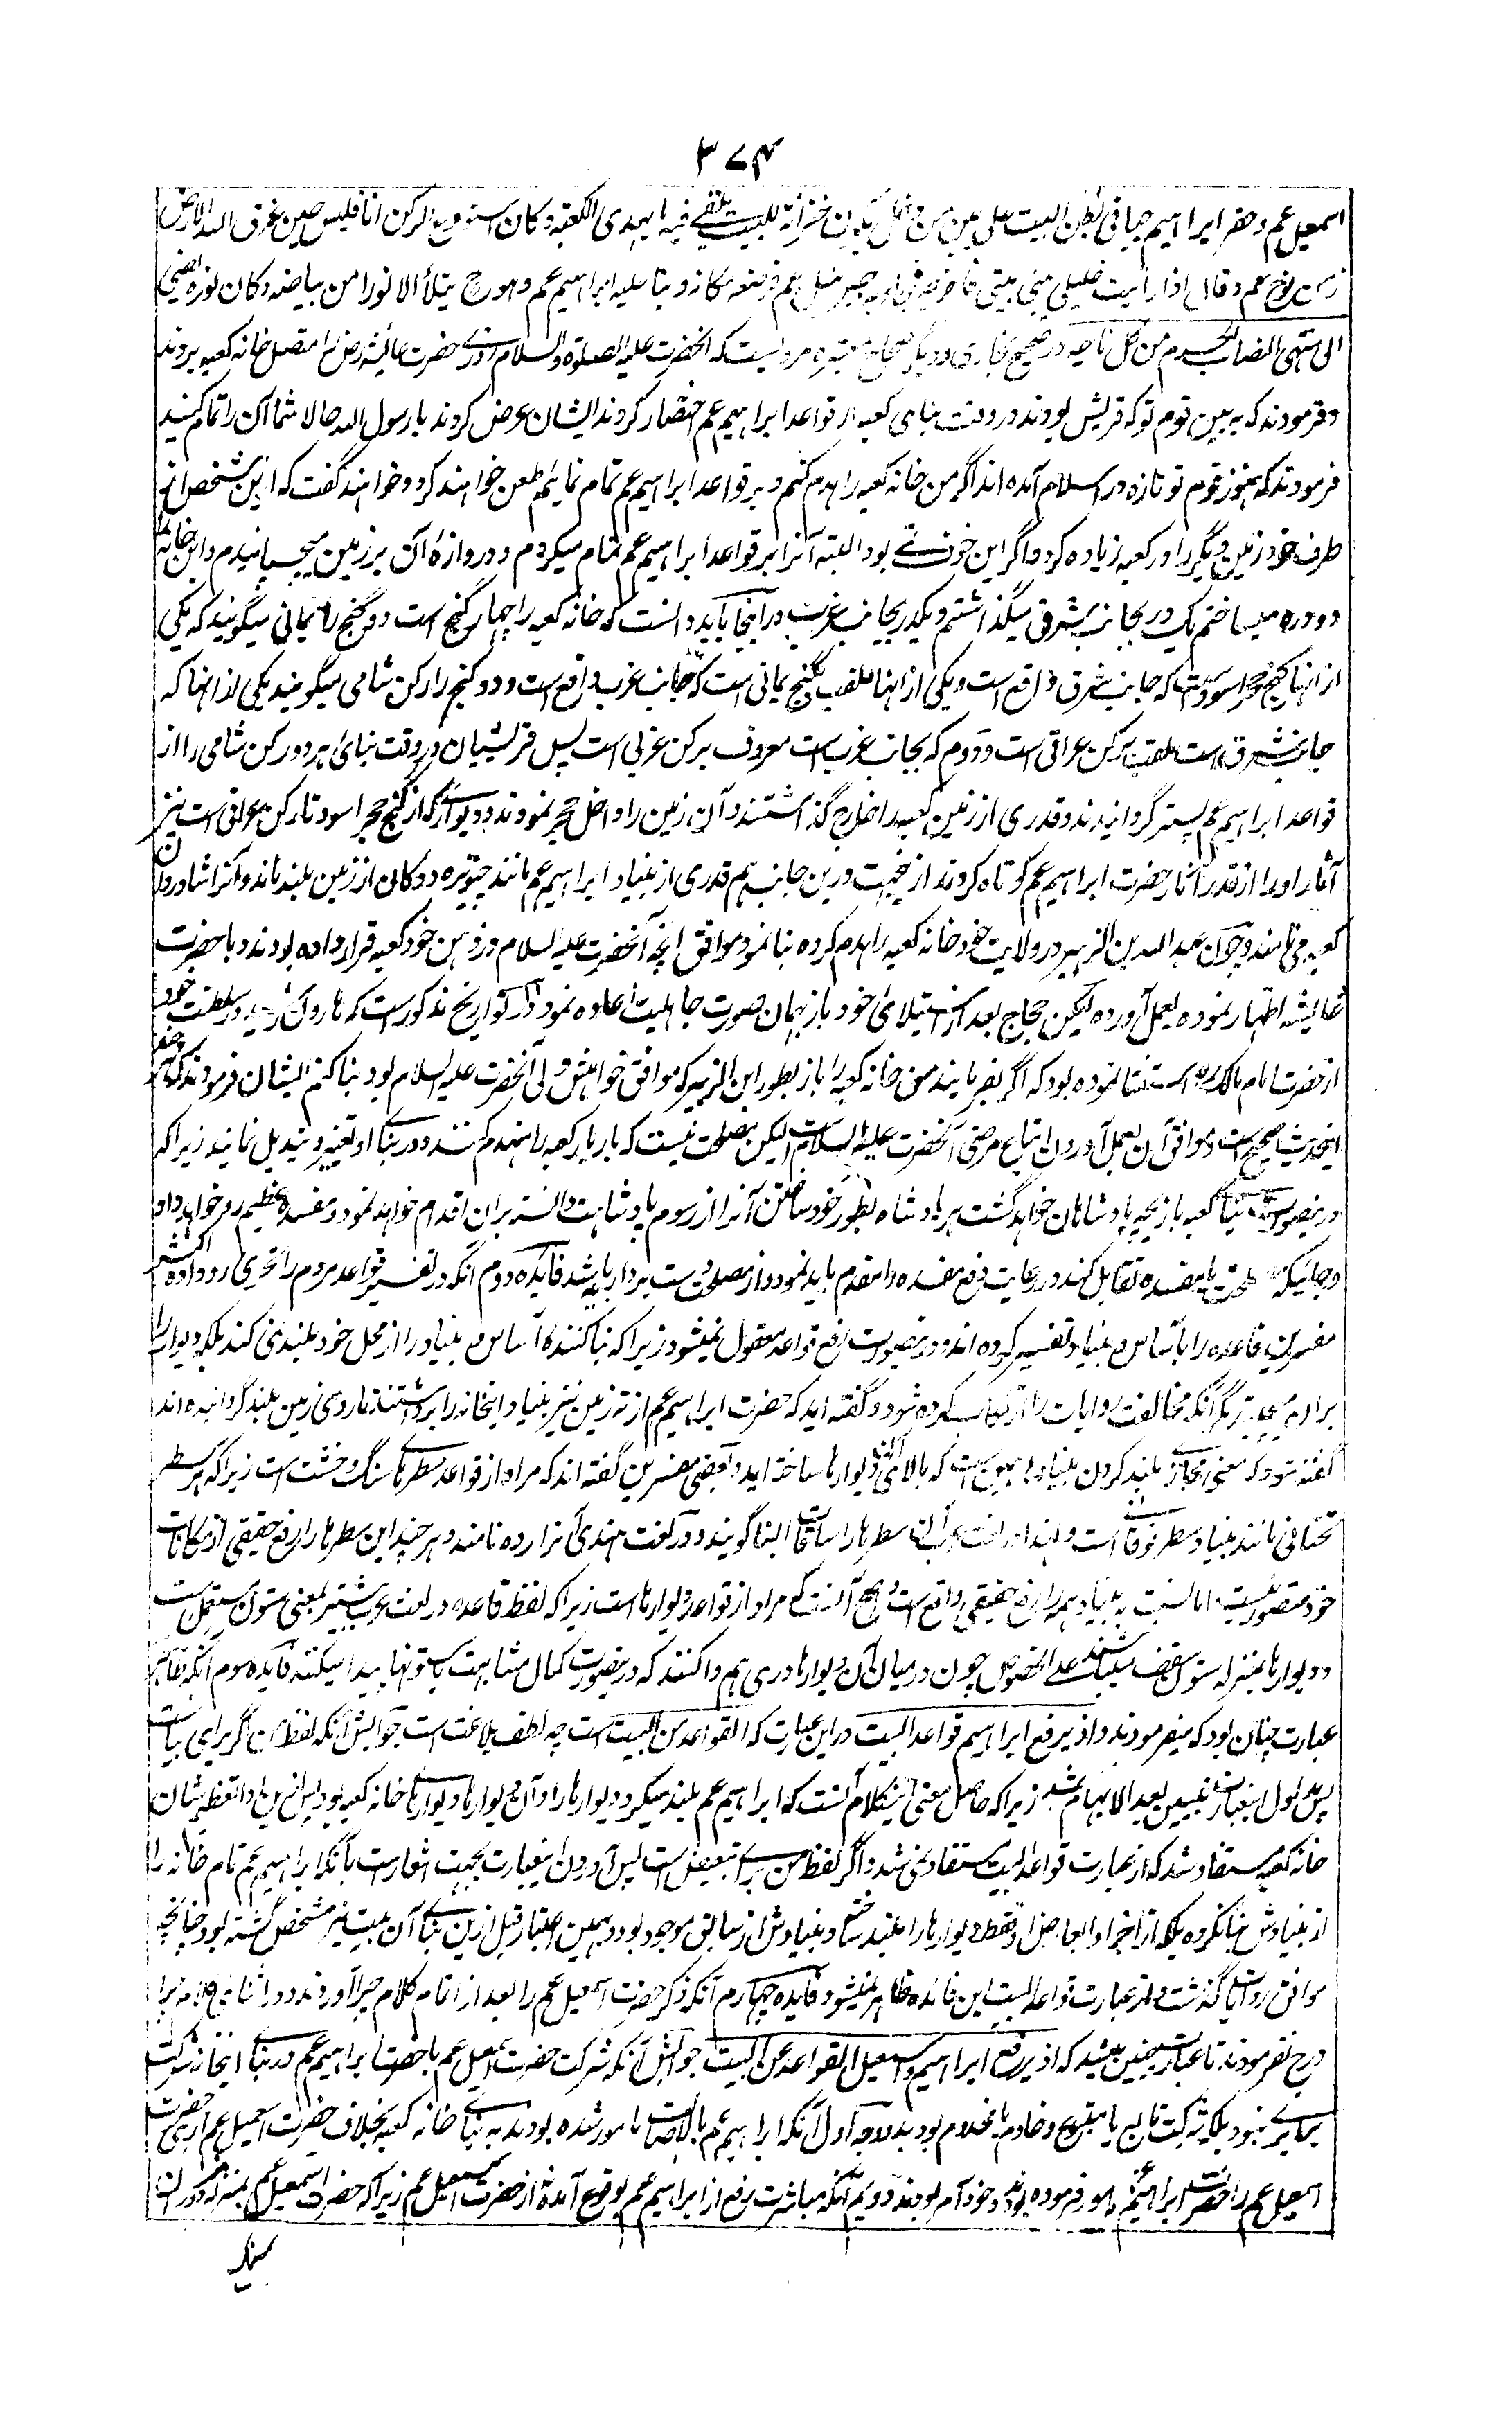 ۳۷۴
اسمعیل عم و حفر ابراهیم جبا فی بطن البیت علی یمین من دخل یکون خزانة للبیت یلقی فیه ما یهدی للکعبة و کان الله استودع الرکن ابا قبیس حین غرق الله الارض
زمن نوح عم و قال اذا رأیت خلیلی یبنی بیتی فاخرجه فجاء به جبرئیل عم فوضعه مکانه و بنا علیه ابراهیم عم و هو ح یتلألأ نورا من بیاضه و کان نوره یضئ
الی منتهی انصاب الحرم من کل ناحیه در صحیح بخاری و دیگر صحاح معتبره مرویست که آنحضرت علیه الصلوة والسلام روزی حضرت عائشه رض را متصل خانه کعبه بردند
و فرمودند که به بین قوم تو که قریش بودند در وقت بنای کعبه از قواعد ابراهیم عم اختصار کردند ایشان عرض کردند یا رسول الله حالا شما آن را تمام کنید
فرمودند که هنوز قوم تو تازه در اسلام آمده اند اگر من خانه کعبه را هدم کنم و بر قواعد ابراهیم عم تمام نمایم طعن خواهند کرد و خواهند گفت که این شخص از
طرف خود زمین دیگر را در کعبه زیاده کرد و اگر این خوف نمی بود البته آنرا بر قواعد ابراهیم عم تمام میکردم و دروازه آن بر زمین میچسپانیدم و این خانه را
دو دره میساختم یک در بجانب شرق میگذاشتم و یکدر بجانب غرب در اینجا باید دانست که خانه کعبه را چهار کنج است دو کنج را یمانی میگویند که یکی
از انها کنج حجر اسود ست که جانب شرق واقع است و یکی از انها ملقب بکنج یمانی است که جانب غرب واقع است و دو کنج را رکن شامی میگویند یکی از انها که
جانب شرق است ملقب برکن عراقی است و دوم که بجانب غرب است معروف برکن غربی است پس قریشیان در وقت بنای هر دو رکن شامی را از
قواعد ابراهیم عم پستر گردانیدند و قدری از زمین کعبه را خارج گذاشتند و آن زمین را داخل حجر نمودند و دیواری که از کنج حجر اسود تا رکن عراقی است نیز
آثار او را از قدر آثار حضرت ابراهیم عم کوتاه کردند ازینجهت درین جانب هم قدری از بنیاد ابراهیم عم مانند چبوتره دوکان از زمین بلند ماند و آنرا شادروان
کعبه می نامند و چون عبد الله بن الزبیر در ولایت خود خانه کعبه را هدم کرده بنا نمود موافق آنچه آنحضرت علیه السلام در ذهن خود کعبه قرار داده بودند و با حضرت
عائشه اظهار نموده بعمل آورده لیکن حجاج بعد از استیلای خود باز بهمان صورت جاهلیت اعاده نمود و در تواریخ مذکورست که هارون رشید در سلطنت خود
از حضرت امام مالک ره استفتا نموده بود که اگر بفرمایند من خانه کعبه را باز بطور ابن الزبیر که موافق خواهش دلی آنحضرت علیه السلام بود بنا کنم ایشان فرمودند که هر چند
اینحدیث صحیح است و موافق آن بعمل آوردن اتباع مرضی آنحضرت علیه السلام است لیکن مصلحت نیست که بار بار کعبه را منهدم کنند و در بنای او تغییر و تبدیل نمایند زیرا که
درینصورت بنای کعبه بازیچه پادشاهان خواهد گشت هر پادشاه بطور خود ساختن آنرا از رسوم پادشاهت دانسته بران اقدام خواهد نمود و مفسده عظیم رو خواهد داد
و جائیکه مصلحت با مفسده تقابل کند رعایت دفع مفسده را مقدم باید نمود و از مصلحت دست بردار باید شد فائده دوم آنکه در تفسیر قواعد مردم را تحیری رو داده اکثر
مفسرین قاعده را باساس و بنیاد تفسیر کرده اند و درینصورت رفع قواعد معقول نمیشود زیرا که بنا کننده اساس و بنیاد را از محل خود بلند نمی کند بلکه دیوار را
بران می چیند مگر آنکه مخالفت روایات را ارتکاب کرده شود و گفته اید که حضرت ابراهیم عم از ته زمین نیز بنیاد اینخانه را برداشتند تا روی زمین بلند گردانیده اند
گفته شود که معنی مجازی بلند کردن بنیادها همین است که بالای آنها دیوارها ساخته اید و بعضی مفسرین گفته اند که مراد از قواعد سطرهای سنگ و خشت است زیرا که هر سطر
تحتانی مانند بنیاد سطر فوقانی است و لهذا در لغت عرب آن سطرها را ساقات البنا گویند و در لغت هندی آنرا رده نامند و هر چند این سطرها را رفع حقیقی از مکانات
خود متصور نیست اما نسبت به بنیاد همه را رفع حقیقی واقع است و اصح آنست که مراد از قواعد دیوارهاست زیرا که لفظ قاعده در لغت عرب بیشتر بمعنی ستون مستعمل است
و دیوارها بمنزله ستون سقف میباشند علی الخصوص چون در میان آن دیوارها دری هم وا کنند که درینصورت کمال مشابهت با ستونها پیدا میکنند فائده سوم آنکه ظاهر
عبارت چنان بود که میفرمودند و اذ یرفع ابراهیم قواعد البیت در این عبارت که القواعد من البیت است چه لطف بلاغت است جوابش آنکه لفظ من اگر برای بیانست
پس مدلول اینعبارت تبیین بعد الابهام شد زیرا که حاصل معنی اینکلام آنست که ابراهیم عم بلند میکرد دیوارها را و آن دیوارها دیوارهای خانه کعبه بود پس ازین راه تعظیم شان
خانه کعبه مستفاد شد که از عبارت قواعد البیت مستفاد نمی شد و اگر لفظ من برای تبعیض است پس آوردن اینعبارت بجهت اشعارست بآنکه ابراهیم عم تمام خانه را
از بنیادش بنا نکرده بلکه از اجزا و ابعاض او فقط دیوارها را بلند ساخت و بنیادش از سابق موجود بود و بهمین اعتبار قبل ازین بنای آن بیت نیز مشخص گشته بود چنانچه
موافق روایات گذشت و از عبارت قواعد البیت این فائده ظاهر نمیشود فائده چهارم آنکه ذکر حضرت اسمعیل عم را بعد از اتمام کلام چرا آوردند و در اثنای کلام چرا
درج نفرمودند تا عبارت چنین میشد که اذ یرفع ابراهیم و اسمعیل القواعد من البیت جوابش آنکه شرکت حضرت اسمعیل عم با حضرت ابراهیم عم در بنای اینخانه شرکت
برابری نبود بلکه شرکت تابع با متبوع و خادم با مخدوم بود بدو وجه اول آنکه ابراهیم عم بالاصالت مامور شده بودند به بنای خانه کعبه بخلاف حضرت اسمعیل عم
اسمعیل عم را حضرت ابراهیم عم مامور فرموده بودند و خود آمر بودند دویم آنکه مباشرت رفع از ابراهیم عم بوقوع آمده نه از حضرت اسمعیل عم زیرا که حضرت اسمعیل عم بمنزله مزدوران